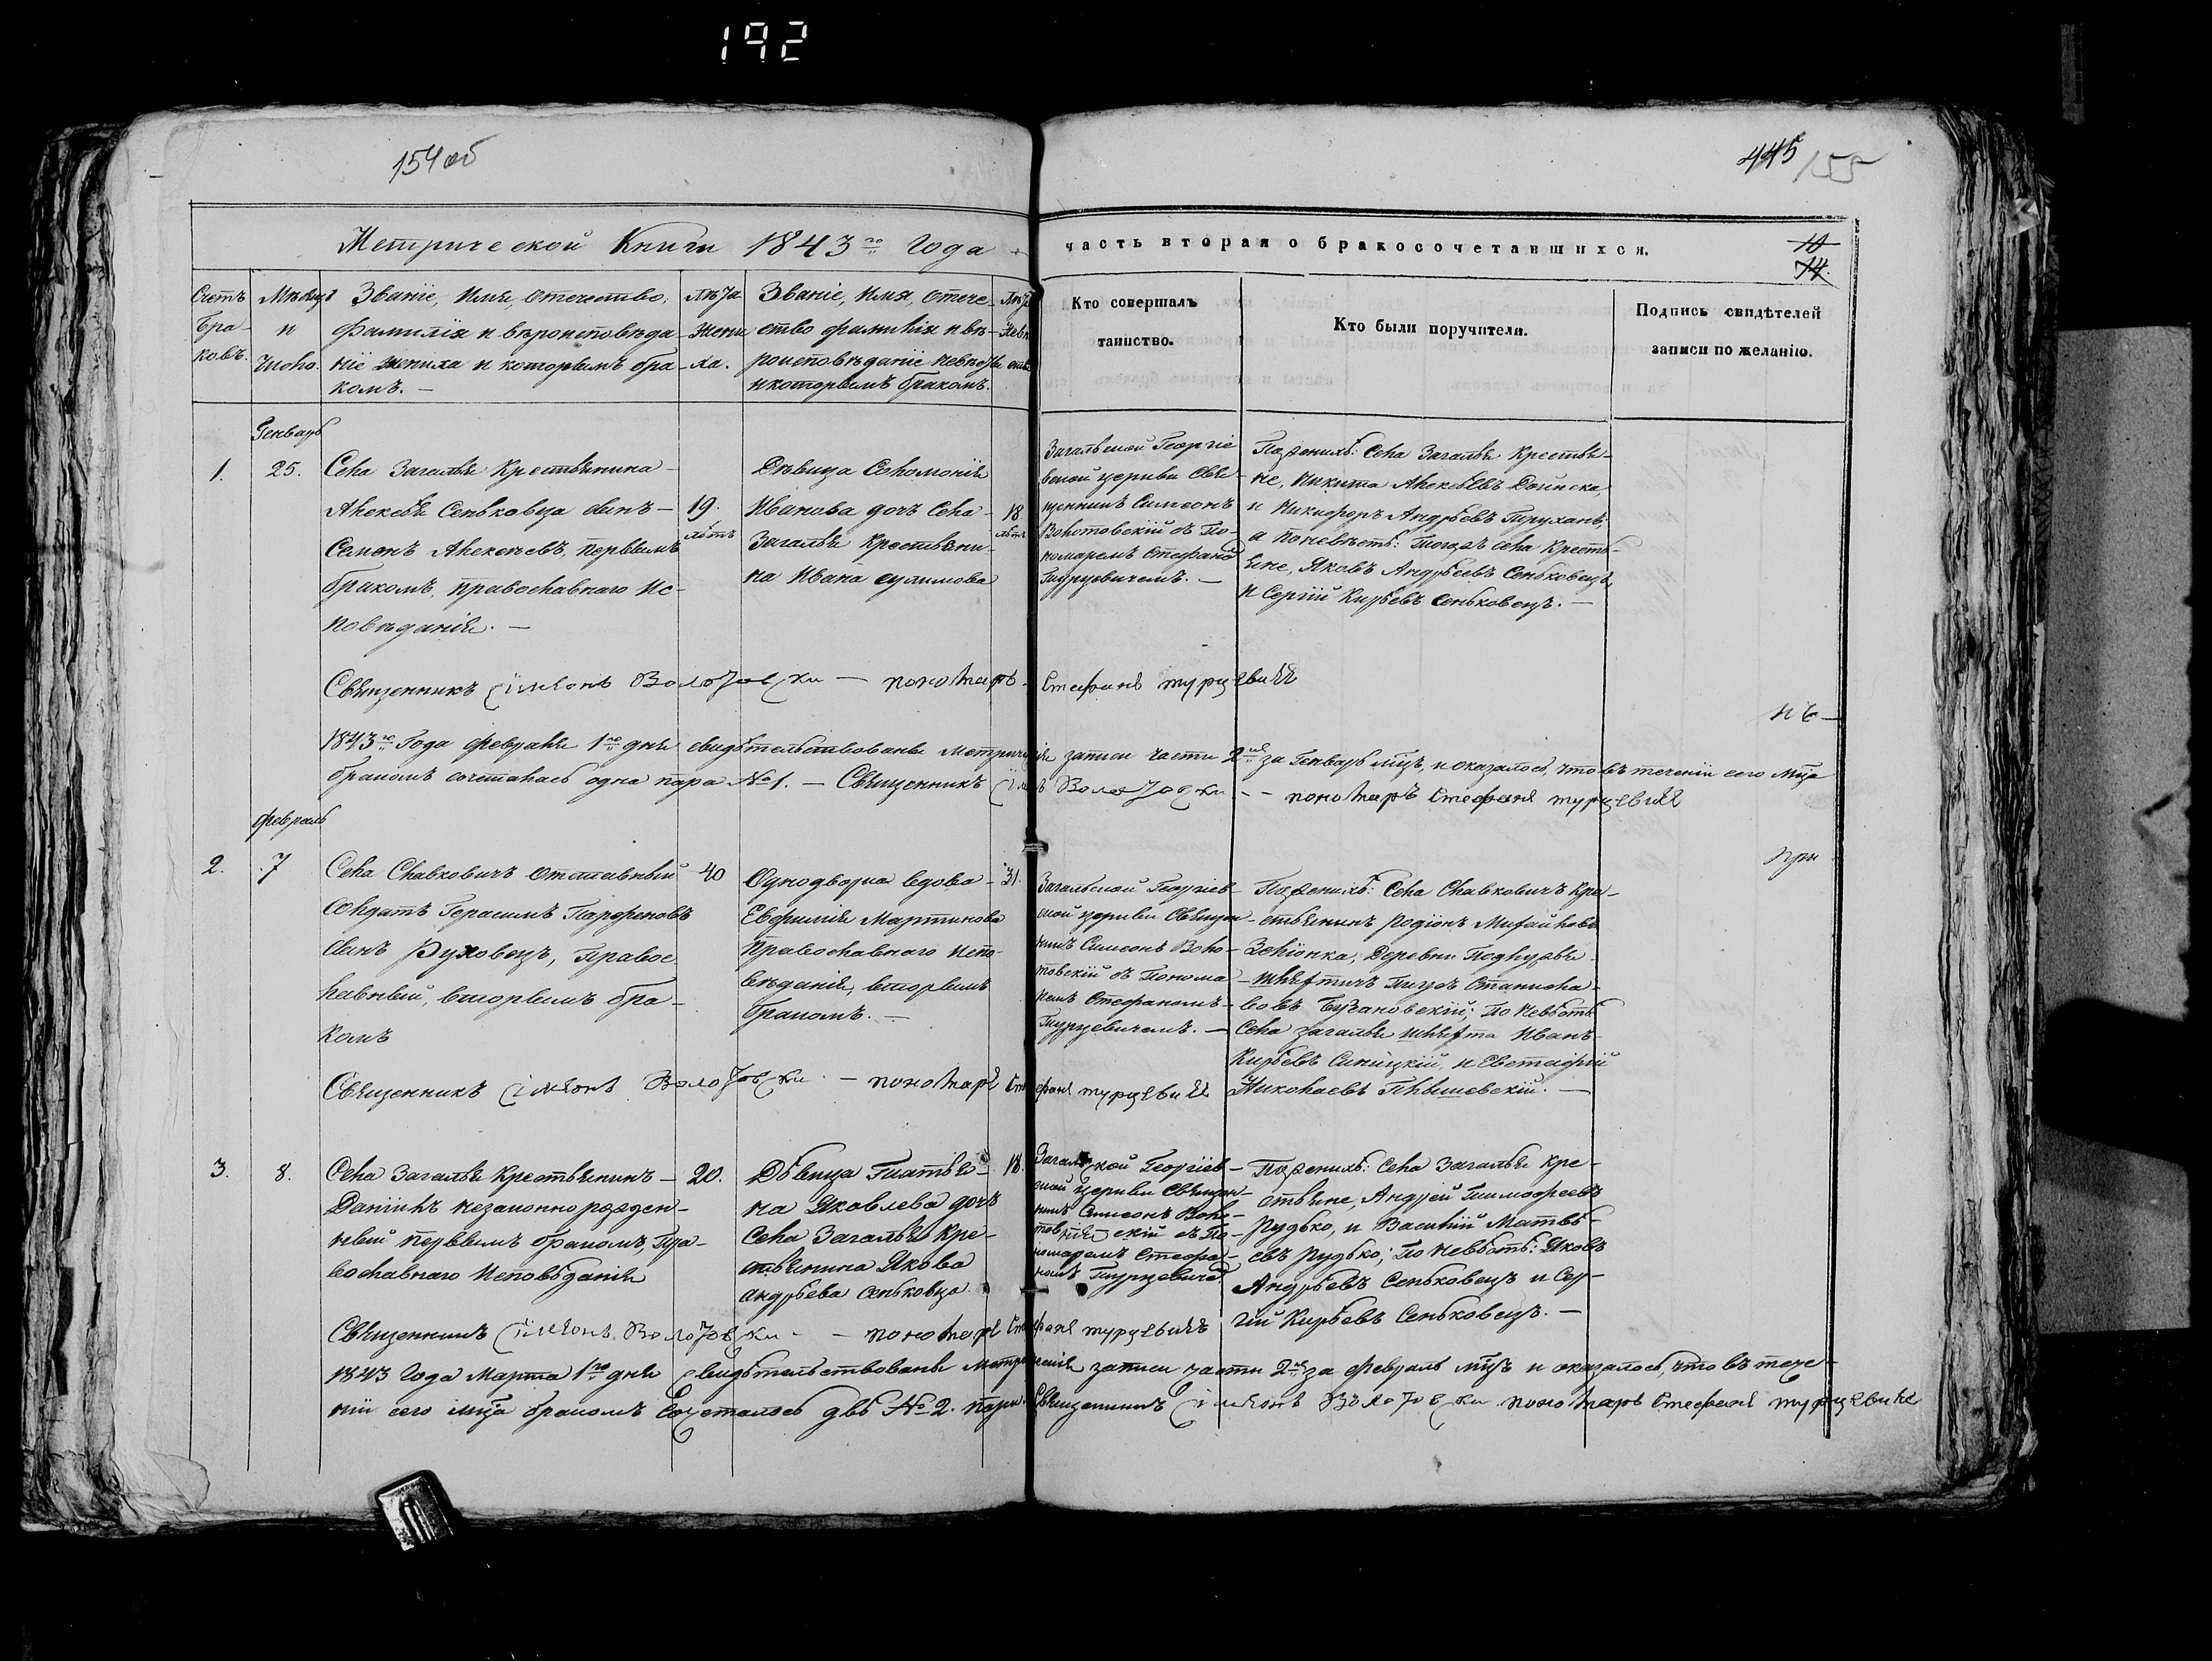 192
154 об
445 155
Метрической Книги 1843го Года
часть вторая о бракосочетавшихся.
10
14.
Счетъ Бра- ковъ.
Мѣсяцъ и Число.
Званіе, Имя, отечество,
фамилія и вѣроисповѣда-
ніе жениха и которымъ бра-
комъ. —
Лѣта Жени- ха.
Званіе, Имя, отече-
ство фамилія и вѣ-
роисповѣданіе невѣсты
и которымъ бракомъ.
Лѣта Невѣ
Кто совершалъ
таинство.
Кто были поручители.
Подпись свидѣтелей
записи по желанію.
Генварь
1.
25.
Села Загалья Крестьянина
Алексѣя Сеньковца сынъ —
Семенъ Алексѣевъ, первымъ
бракомъ, православнаго Ис-
повѣданія. —
19.
лѣтъ
Дѣвица Соломонія
Иванова дочь Села
Загалья Крестьяни-
на Ивана Сулимова
18
лѣтъ
Загальской Георгіе
вской церкви Свя-
щенникъ Симеонъ
Волотовскій съ По-
номаремъ Стефаном
Турцевичемъ. —
По женихѣ: Села Загалья Крестья-
не, Никита Алексѣевъ
и Никифоръ Андрѣевъ
а по невѣстѣ: Тогожъ села Кресть-
яне, Яковъ Андрѣевъ Сеньковецъ,
и Сергій Кирѣевъ Сеньковецъ. —
Священникъ Сімеонъ Волотовски — пономарь Стефанъ турцевичъ
1843го Года февраля 1го дня свидѣтельствованы Метрическія записи части 2й за Генварь мцъ, и оказалось, что въ теченіи сего мца
бракомъ сочеталась одна пара №1. — Священникъ Сімеонъ Волотовски — пономаръ Стефанъ турцевичъ
февраль
2.
7
Села Славковичъ Отставный
солдатъ Герасимъ Парфеновъ
сынъ Руховецъ, Правос
лавный, вторымъ бра-
комъ
40
Однодворца вдова
Евфимія Мартинова
Православнаго Испо-
вѣданія, вторымъ
бракомъ. —
31.
Загальской Георгіев-
ской церкви Священ-
никъ Симеонъ Воло-
товскій съ Понома-
ремъ Стефаномъ
Турцевичемъ. —
По женихѣ: Села Славковичъ Кре-
стьянинъ Родіонъ Михайловъ
Деревни
шляхтичъ Станисла-
вовъ По невѣстѣ
Села Загалья шляхта Иванъ
Кирѣевъ Синицкій, и Евстафій
Николаевъ
Священникъ Сімеонъ Волотовски — пономарь Стефанъ турцевичъ
при
3.
8.
Села Загалья Крестьянинъ —
Даніилъ незаконно рожден-
ный первымъ бракомъ, Пра-
вославнаго Исповѣданія
20.
Дѣвица Татья-
на Яковлева дочь
Села Загалья Кре-
стьянина Якова
Андрѣева Сеньковца.
18.
Загальской Георгіев-
ской церкви Священ-
никъ Симеонъ Воло-
товскій съ По-
номаремъ Стефа-
номъ Турцевиче
По женихѣ: Села Загалья Кре-
стьяне, Андрей Тимофеевъ
Рудько, и Василій Матвѣ-
евъ Рудько; По невѣстѣ: Яковъ
Андрѣевъ Сеньковецъ и Сер-
гій Кирѣевъ Сеньковецъ. —
Священникъ Сімеонъ Волотовски — пономарь Стефанъ турцевичъ
1843 Года Марта 1го дня свидѣтельствованы Метрическія записи части 2й за февраль мцъ и оказалось, что въ тече-
ніи сего мца бракомъ Сочеталось двѣ №2. пары. Священникъ Сімеонъ Волотовски пономарь Стефанъ турцевичъ